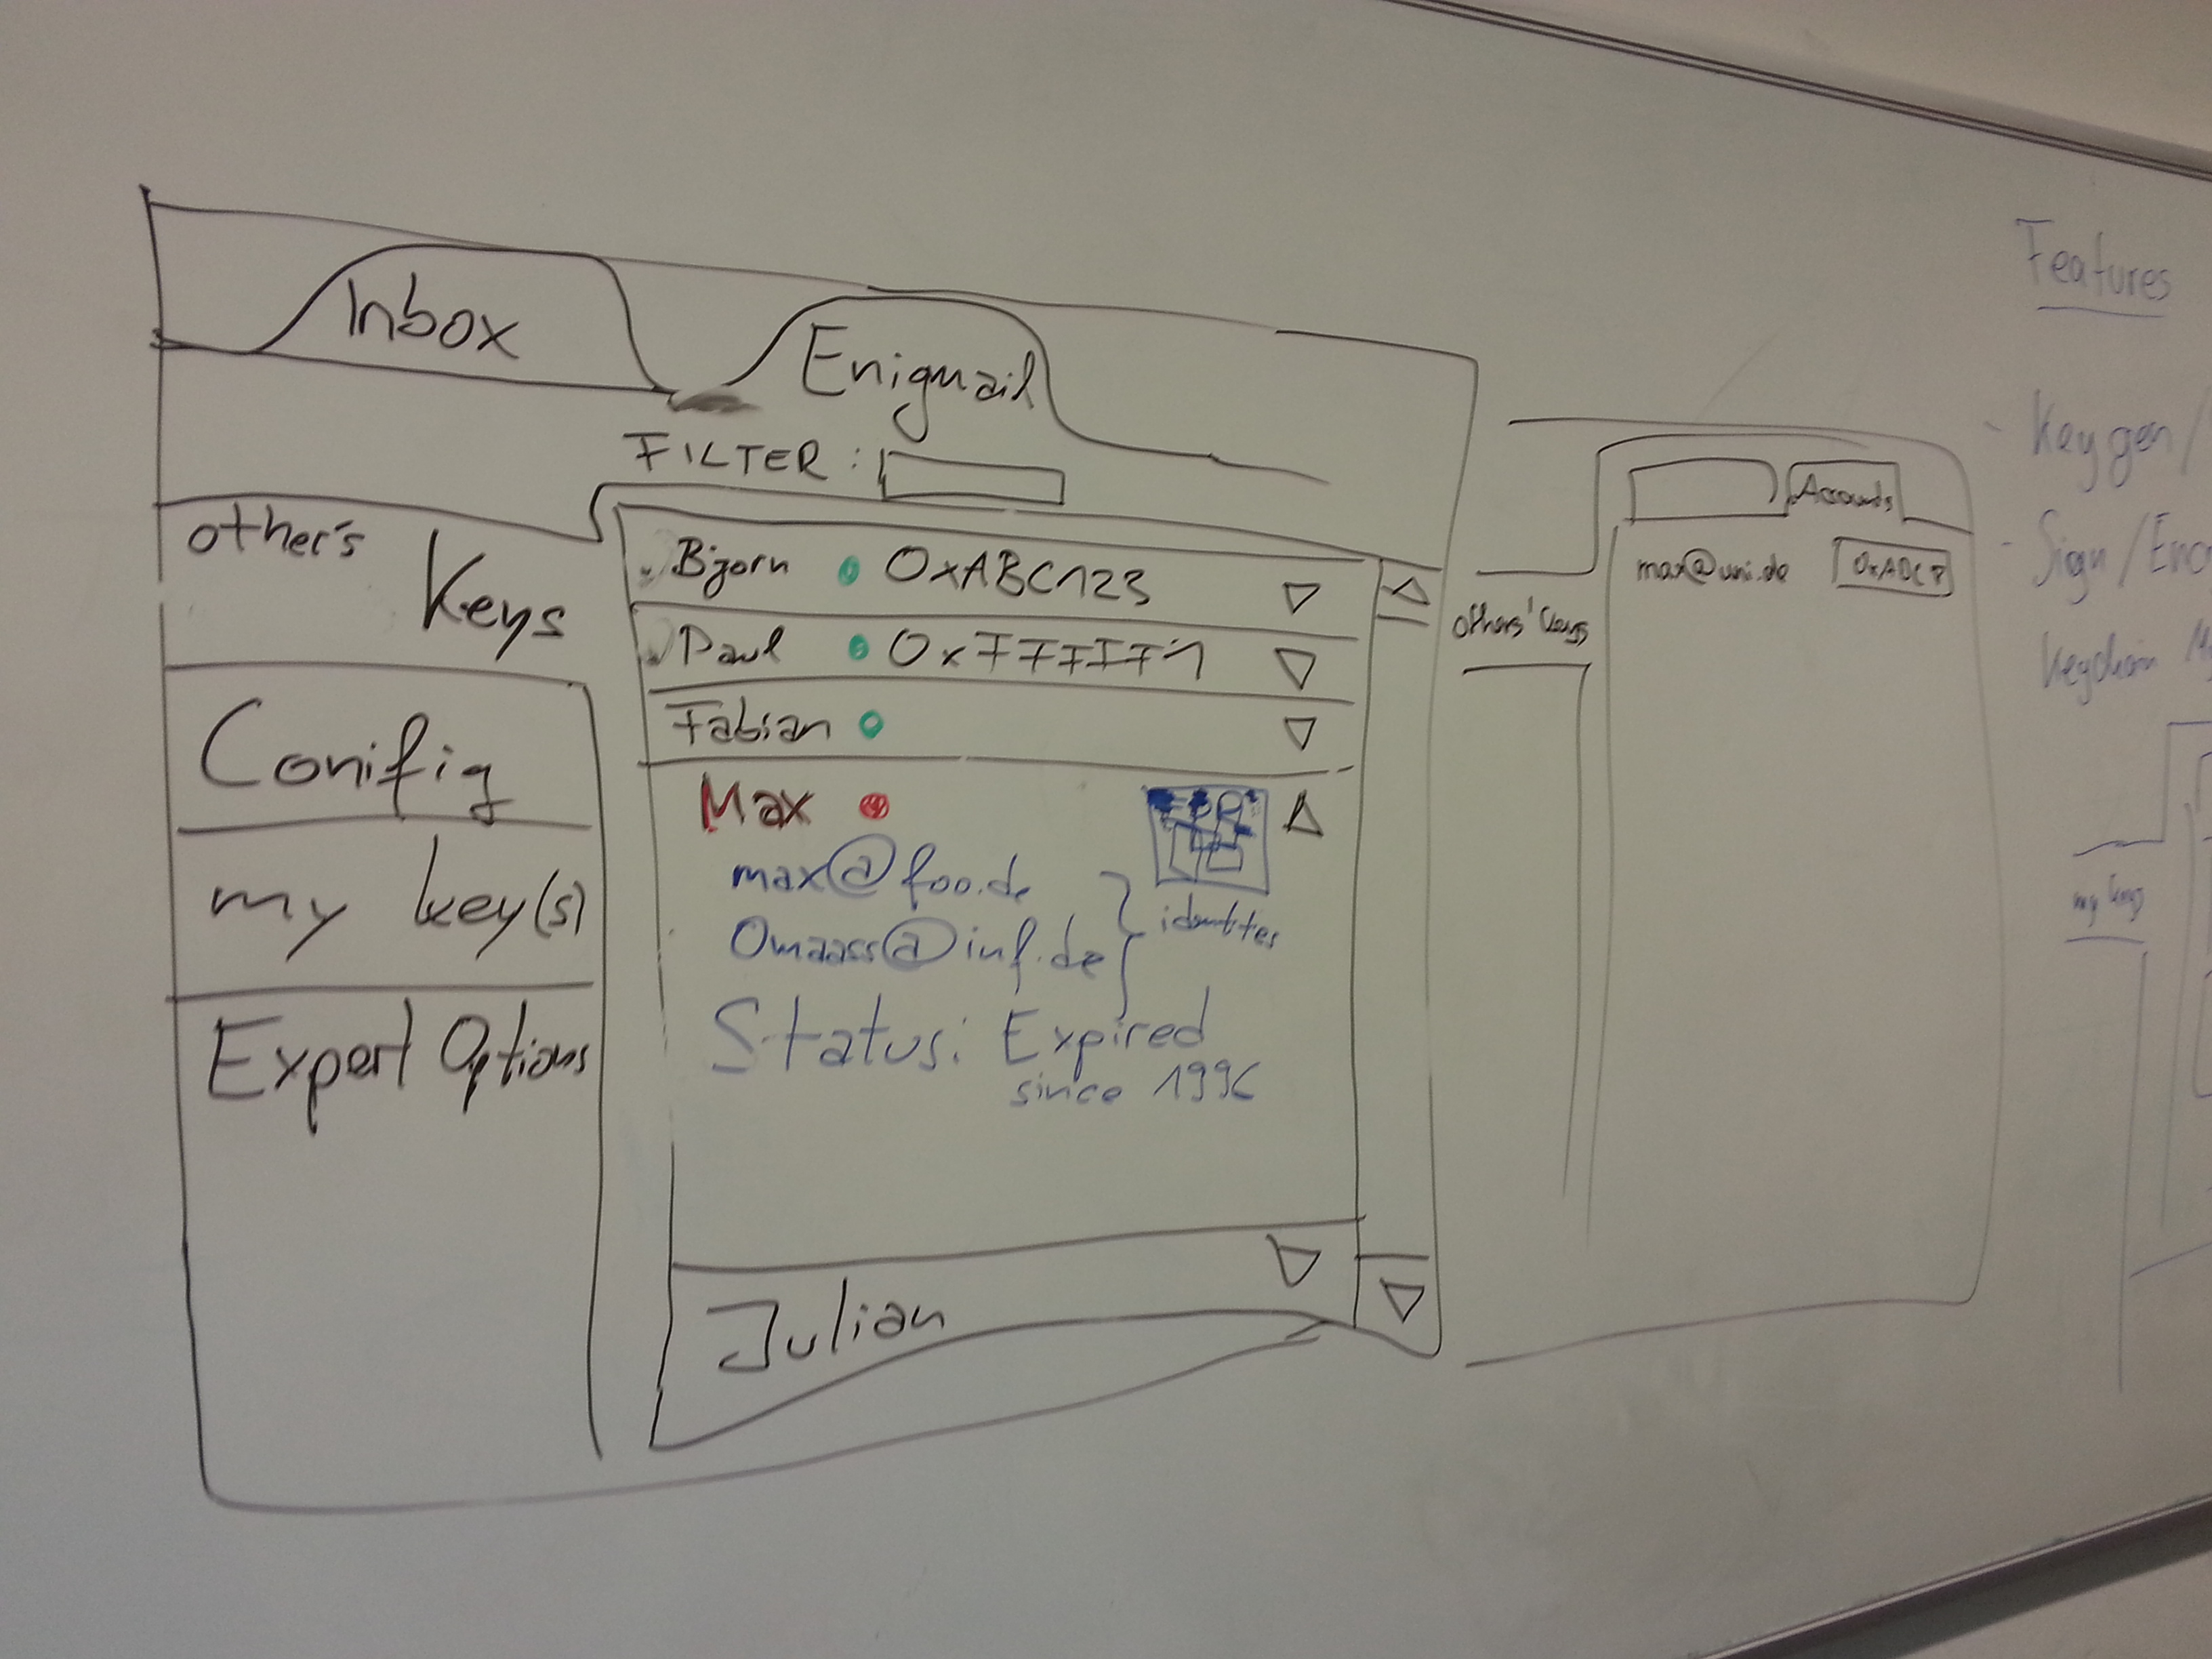 Inbox
Enigmail
FILTER:
other's
Keys
Conifig
my key(s)
Expert Options
Bjorn 0xABC123
Paul 0xFFFFF1
Fabian
Max
max@foo.de
0maass@inf.de
identites
Status: Expired
since 1996
Julian
Accounts
max@uni.de
others' keys
Features
- Keygen/
- Sign/Enc
Keychain
my keys